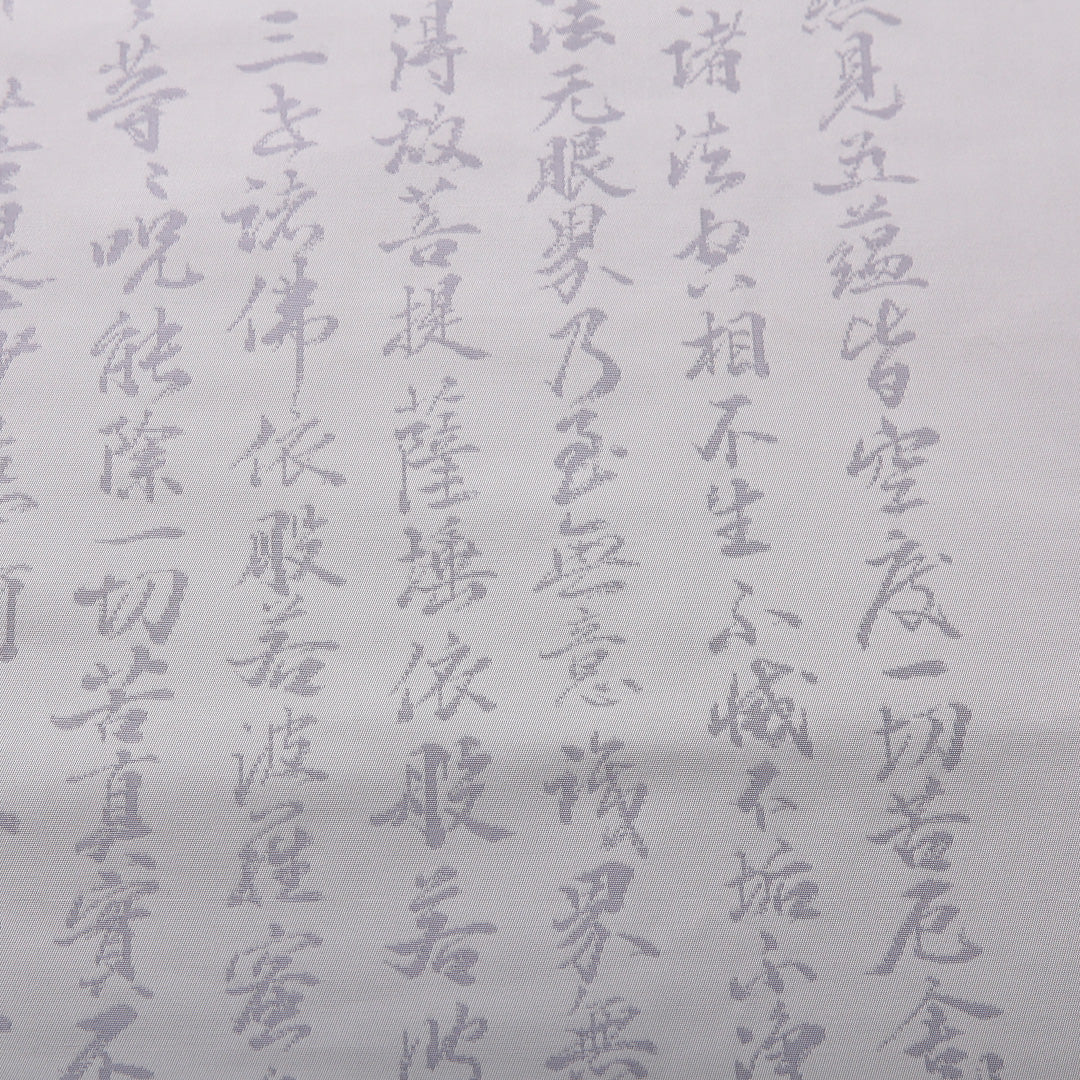 照見五蘊皆空度一切苦厄舍
諸法空相不生不滅不垢不淨
法无眼界乃至無意識界無
得故菩提薩埵依般若波
三世諸佛依般若波羅蜜
等等呪能除一切苦真實不